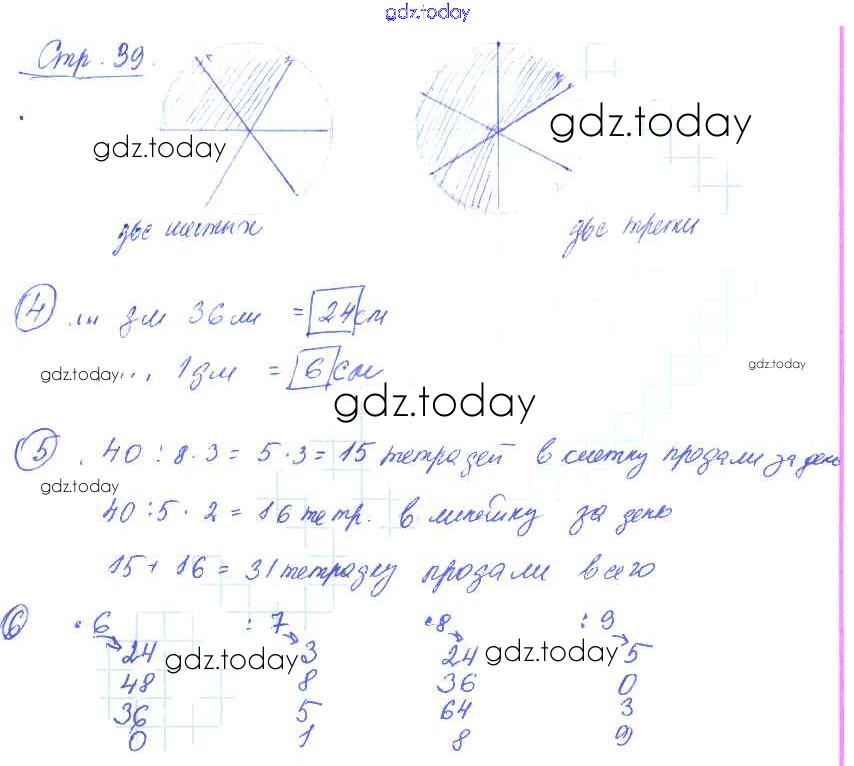 gdz.today
Стр. 39.
gdz.today
gdz.today
две шестых
две трети
4 ... дм 36 мм = 24 см
gdz.today ... 1 дм = 6 см
gdz.today
gdz.today
5 . 40 : 8 · 3 = 5 · 3 = 15 тетрадей в клетку продали за день
gdz.today
40 : 5 · 2 = 16 тетр. в линейку за день
15 + 16 = 31 тетрадку продали всего
6 · 6 : 7 · 8 : 9
24 3 24 5
gdz.today gdz.today
48 8 36 0
36 5 64 3
0 1 8 9